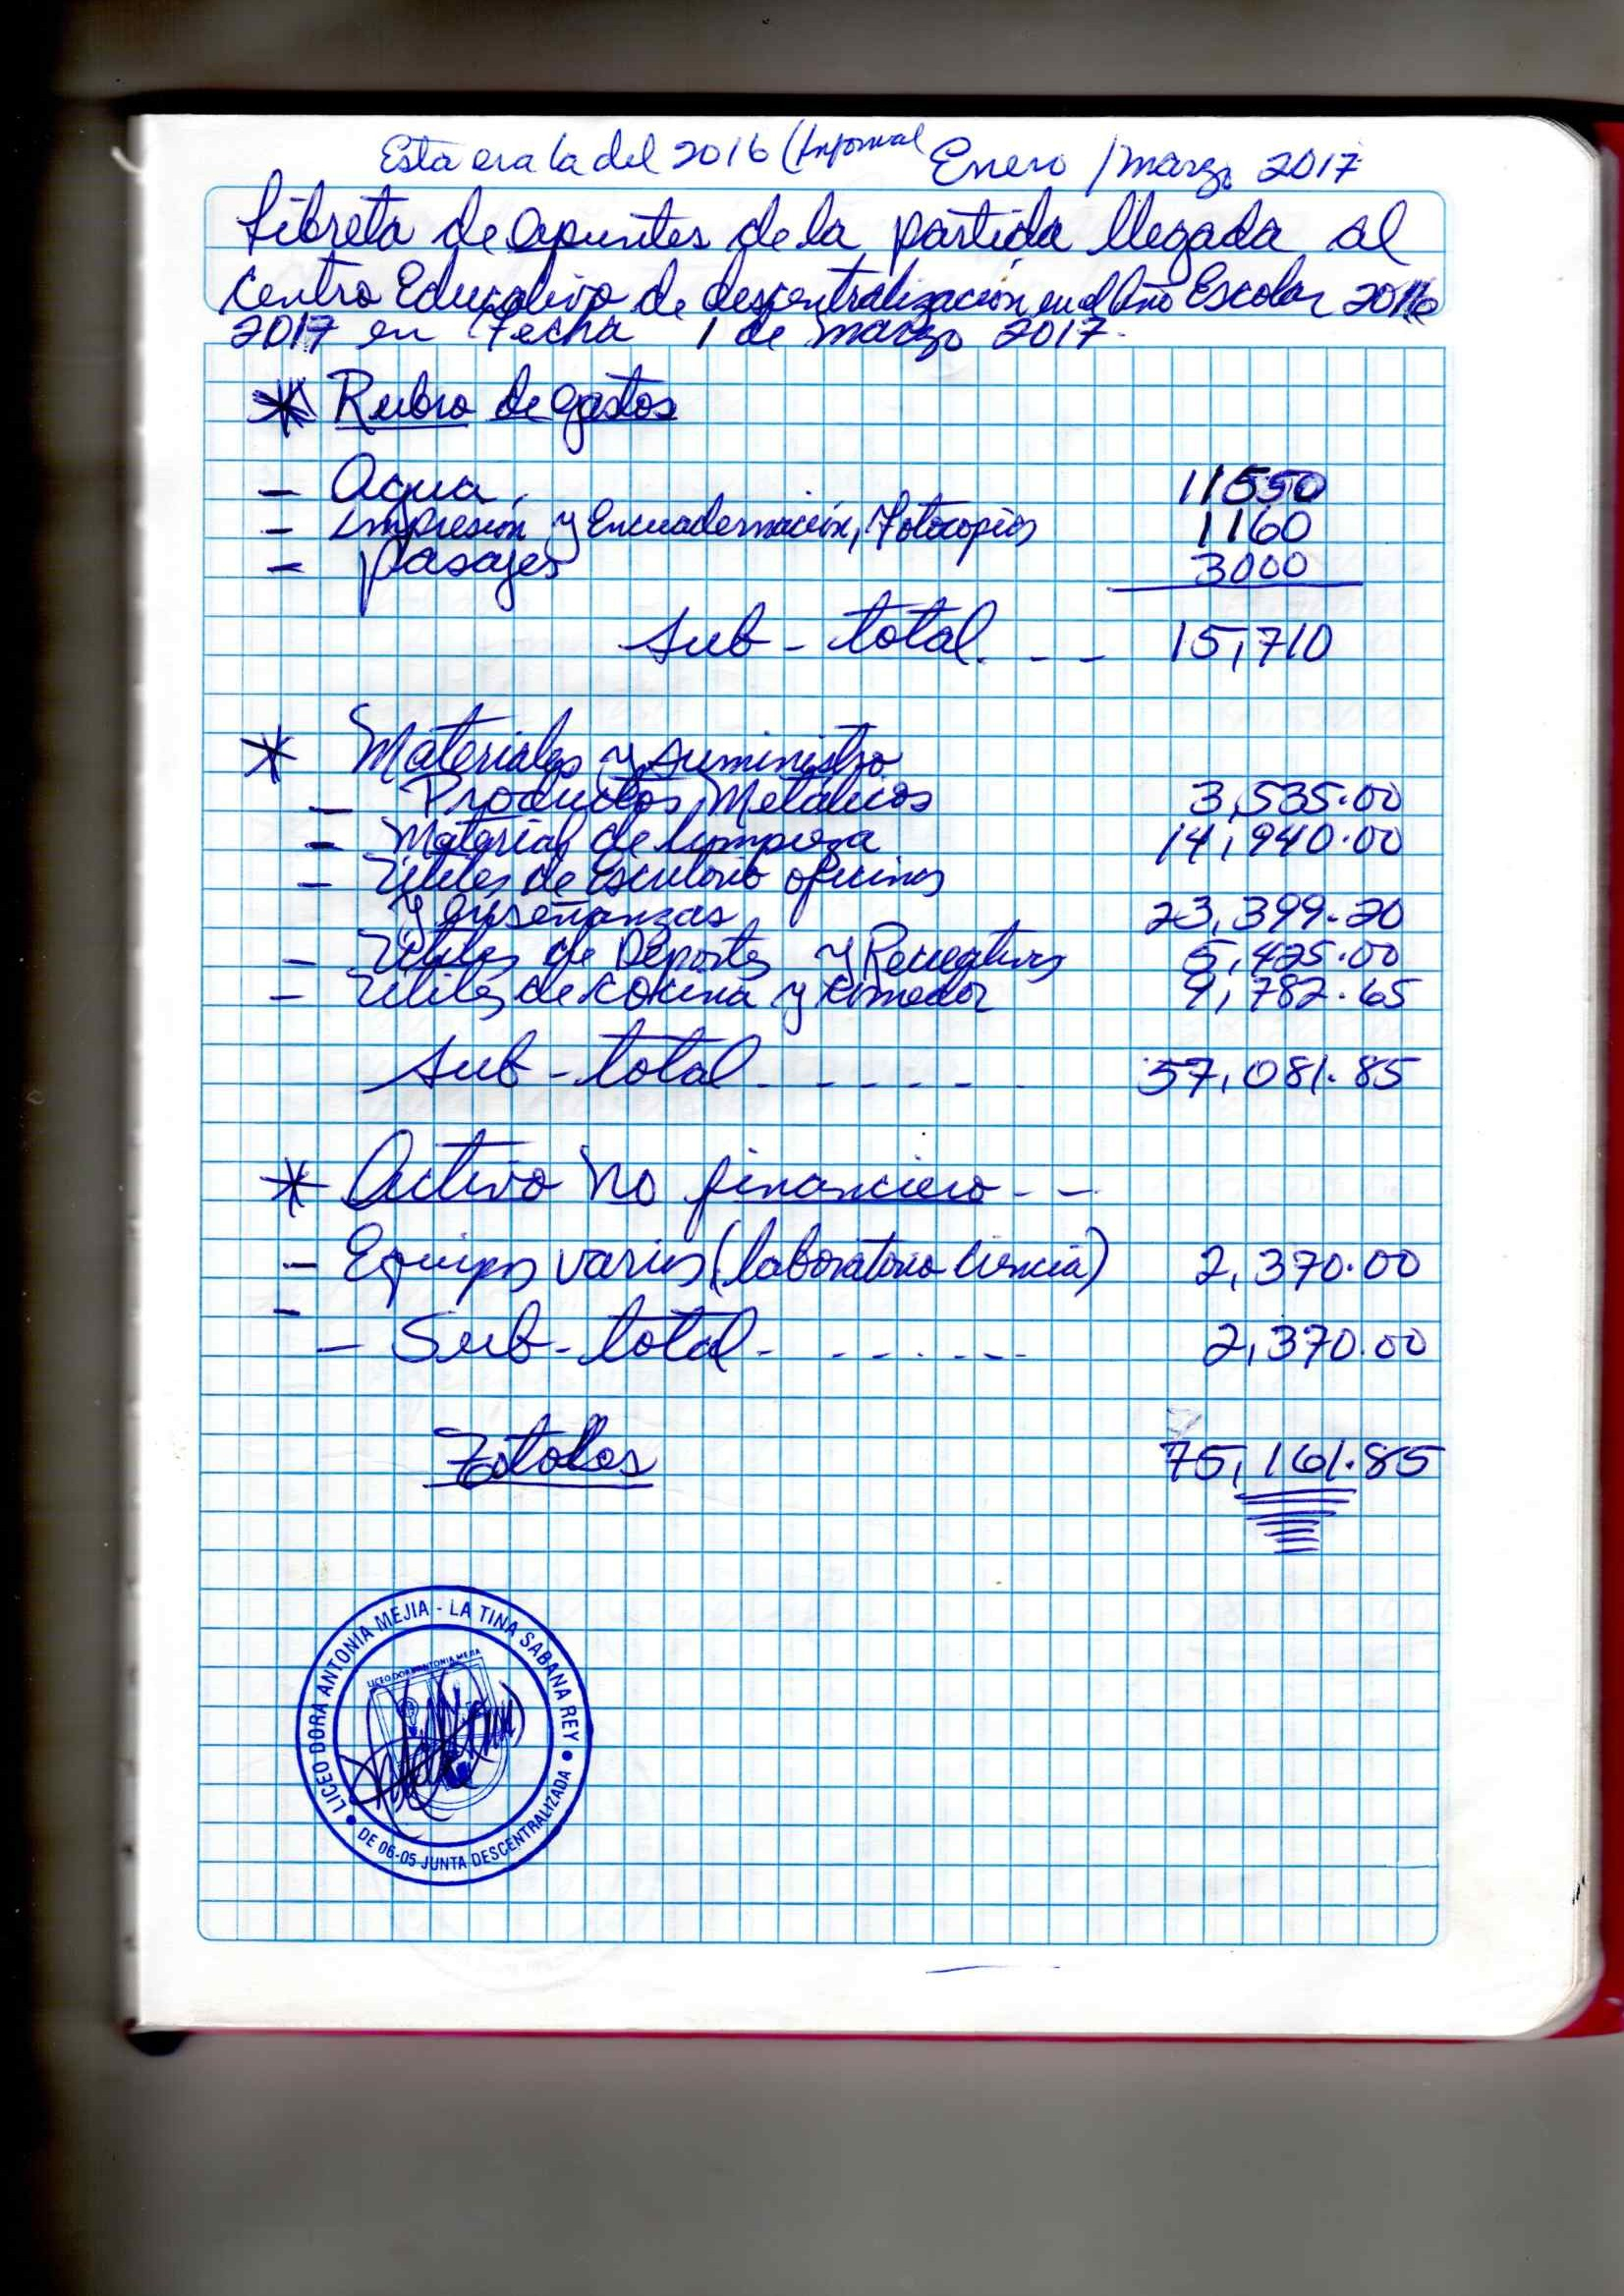 Esta era la del 2016 (Informal Enero / marzo 2017
Libreta de apuntes de la partida llegada al
Centro Educativo de descentralización en el Año Escolar 2016
2017 en fecha 1 de marzo 2017.
* Rubro de gastos
- Agua. 11550
- Impresión y Encuadernación, Fotocopias 1160
- Pasajes 3000
Sub-total. - - 15,710
* Materiales y suministro
- Productos Metálicos 3,535.00
- Material de limpieza 14,940.00
- Utiles de Escritorio oficinas
y enseñanzas 23,399.20
- Utiles de Deportes y Recreativos 5,425.00
- Utiles de cocina y comedor 9,782.65
Sub-total - - - - - 57,081.85
* Activo no financiero - -
- Equipos varios (laboratorio Ciencia) 2,370.00
- - Sub-total - - - - - - 2,370.00
Totales 75,161.85
LICEO DORA ANTONIA MEJIA - LA TINA SABANA REY
LICEO DORA ANTONIA MEJIA
DE 06-05 JUNTA DESCENTRALIZADA